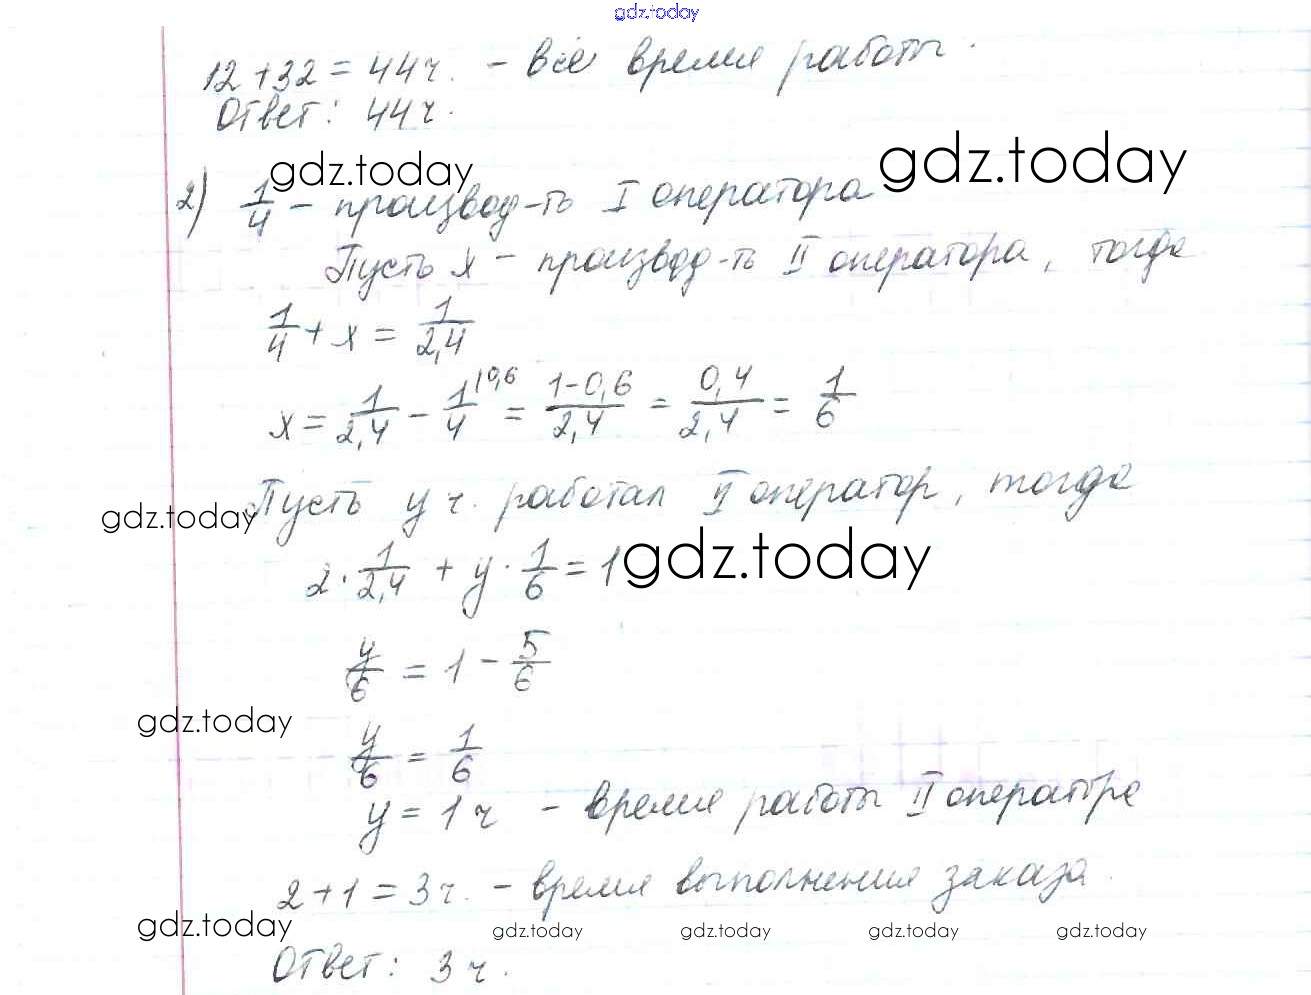 gdz.today
12 + 32 = 44 ч. - всё время работы.
Ответ: 44 ч.
gdz.today
gdz.today
2) 1/4 - производ-ть I оператора
Пусть x - производ-ть II оператора, тогда
1/4 + x = 1/2,4
x = 1/2,4 - 1/4 \0,6 = 1-0,6/2,4 = 0,4/2,4 = 1/6
Пусть y ч. работал II оператор, тогда
gdz.today
2 · 1/2,4 + y · 1/6 = 1
gdz.today
y/6 = 1 - 5/6
gdz.today
y/6 = 1/6
y = 1 ч - время работы II оператора
2 + 1 = 3 ч. - время выполнения заказа.
gdz.today
gdz.today gdz.today gdz.today gdz.today
Ответ: 3 ч.